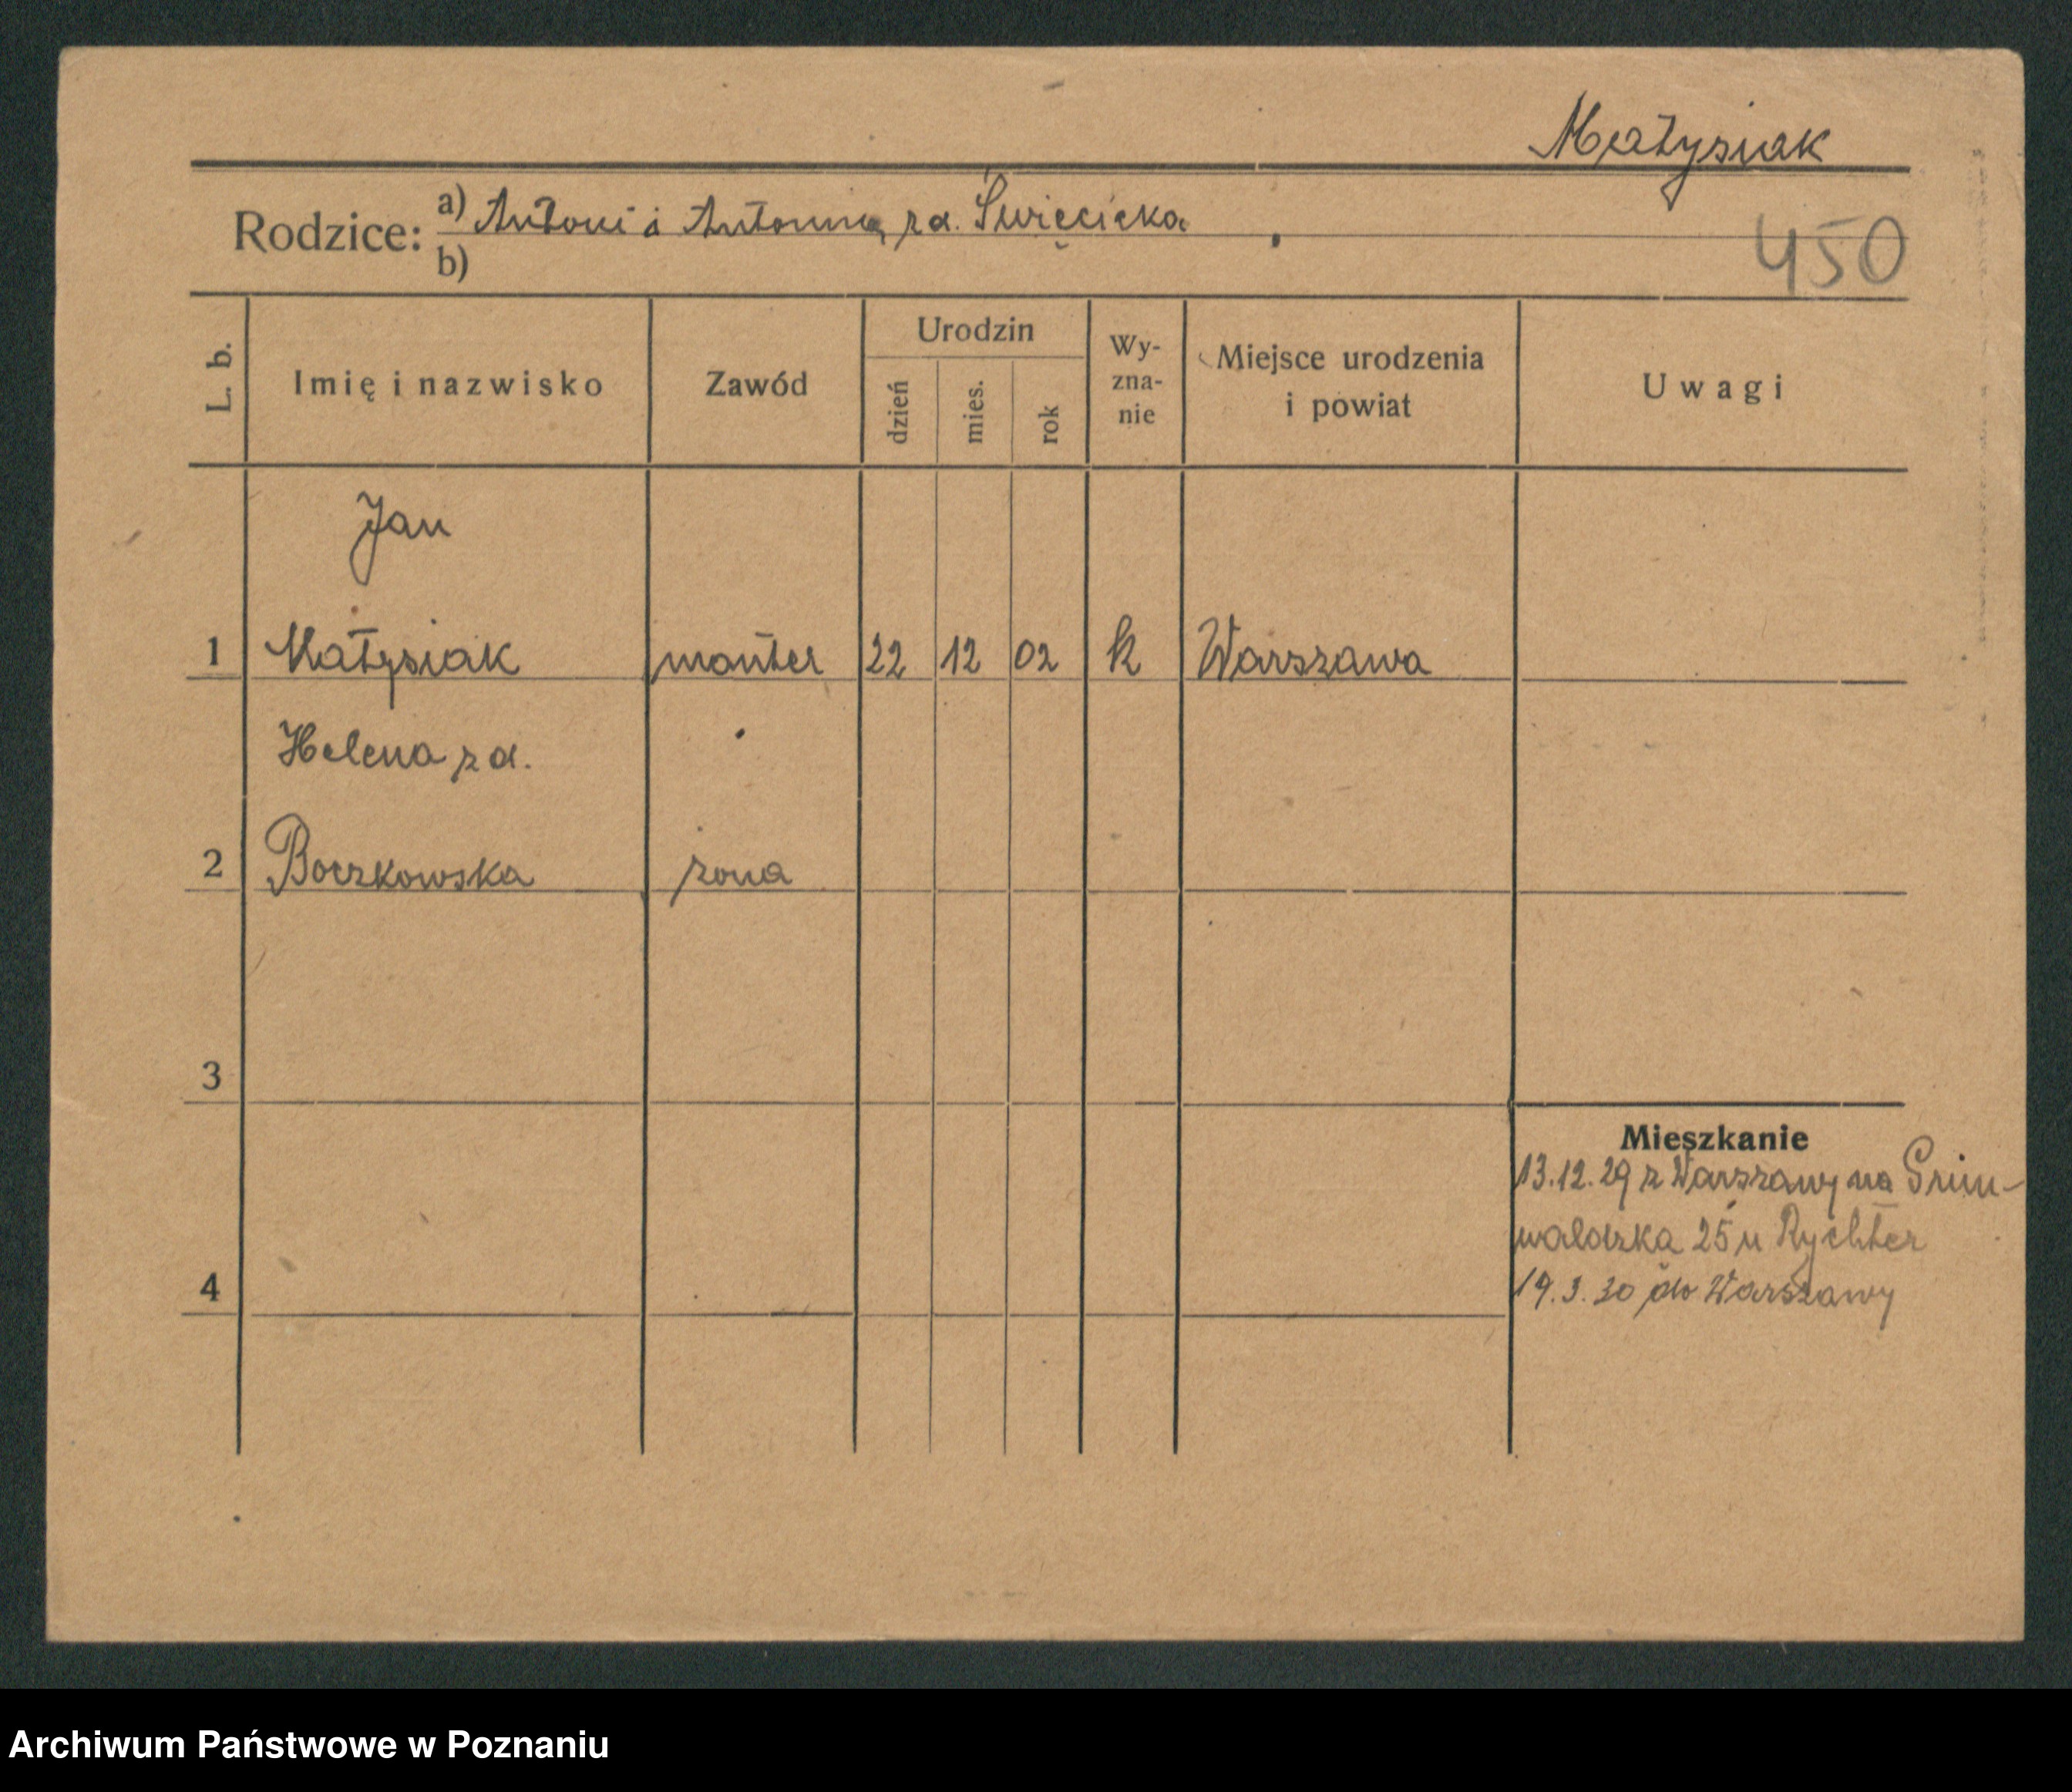 Małysiak
Rodzice: a) Antoni i Antonina z d. Święcicka
b)
450
L. b.
Imię i nazwisko
Zawód
Urodzin
dzień
mies.
rok
Wy-
zna-
nie
Miejsce urodzenia
i powiat
Uwagi
Jan
1 Małysiak monter 22 12 02 k Warszawa
Helena z d.
2 Boczkowska żona
3
Mieszkanie
13.12.29 z Warszawy na Grun-
waldzka 25 u Rychter
4
19.3.30 do Warszawy
Archiwum Państwowe w Poznaniu